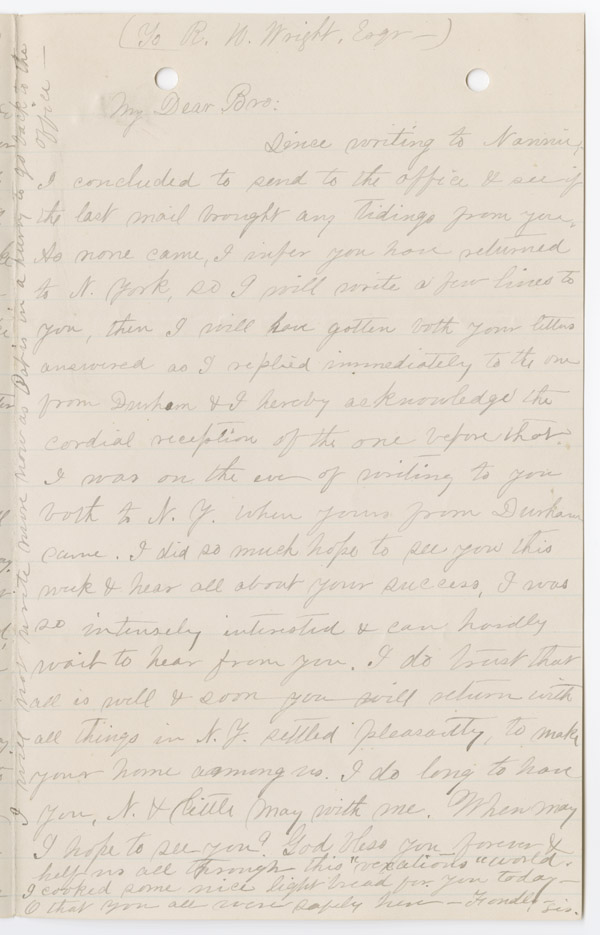 (To R. W. Wright, Esqr —)
My Dear Bro:
Since writing to Nannie,
I concluded to send to the office & see if
the last mail brought any tidings from you,
As none came, I infer you have returned
to N. York, so I will write a few lines to
you, then I will have gotten both your letters
answered as I replied immediately to the one
from Durham & I hereby acknowledge the
cordial reception of the one before that.
I was on the eve of writing to you
both to N. Y. when yours from Durham
came. I did so much hope to see you this
week & hear all about your success, I was
so intensely interested & can hardly
wait to hear from you. I do trust that
all is well & soon you will return with
all things in N.Y. settled pleasantly, to make
your home among us. I do long to have
you, N. & little May with me. When may
I hope to see you? God bless you forever &
help us all through this "vexations" world.
I cooked some nice light bread for you today —
O that you all were safely here — Fondly — sis.
I will not write more now as is in a hurry to go back to the
office —